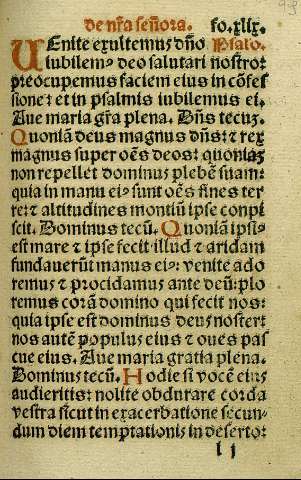 de nr̃a señora. fo.xlix.
VEnite exultemus dño Psalo.
iubilem⁹ deo salutari nostro:
preocupemus faciem eius in cõfes
sione: et in psalmis iubilemus ei.
Aue maria gr̃a plena. Dñs tecuʒ.
Quoniã deus magnus dñs: ⁊ rex
magnus super oẽs deos: quoniaʒ
non repellet dominus plebẽ suam:
quia in manu ei⁹ sunt oẽs fines ter
re: ⁊ altitudines montiũ ipse conspi
scit. Dominus tecũ. Quoniã ipsi⁹
est mare ⁊ ipse fecit illud ⁊ aridam
fundauerũt manus ei⁹: venite ado
remus ⁊ procidamus ante deũ: plo
remus corã domino qui fecit nos:
quia ipse est dominus deus noster:
nos autẽ populus eius ⁊ oues pas
cue eius. Aue maria gratia plena.
Dominus tecũ. Hodie si vocẽ eius
audieritis: nolite obdurare corda
vestra sicut in exacerbatione secun
dum diem temptationis in deserto:
l j